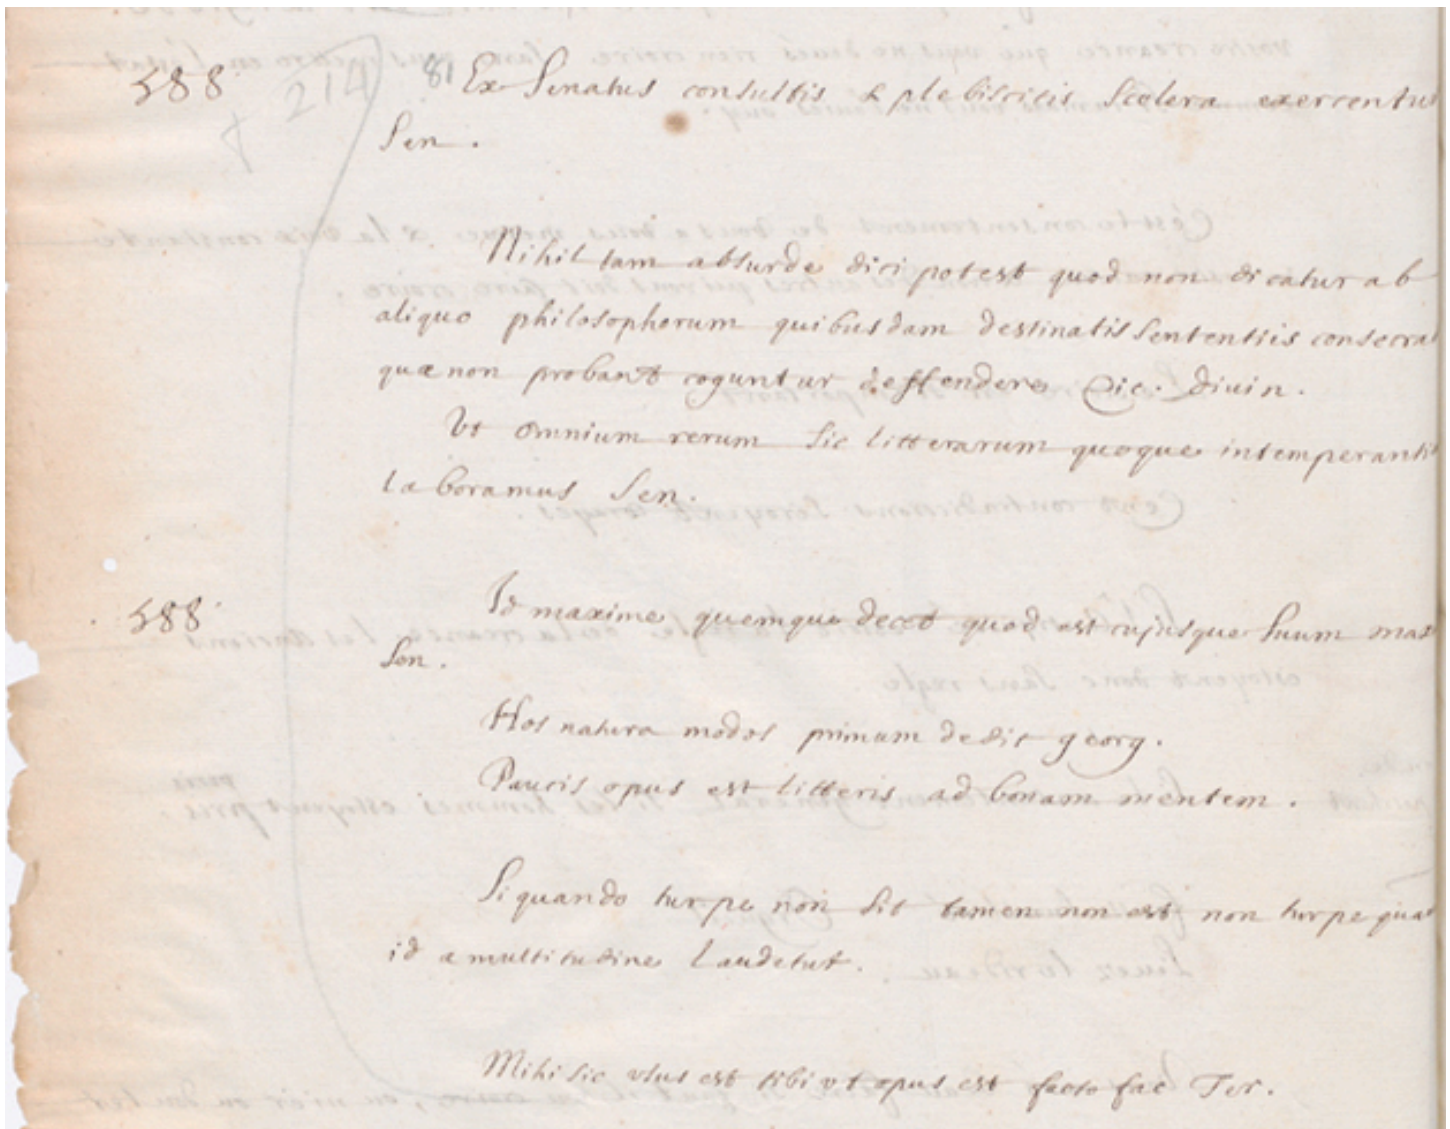 588 214 81 Ex Senatus consultis & plebiscitis scelera exercentur
Sen.
Nihil tam absurde dici potest quod non dicatur ab
aliquo philosophorum quibusdam destinatis sententiis consecra
quæ non probant coguntur deffendere Cic. divin.
Vt omnium rerum sic litterarum quoque intemperanti
laboramus Sen.
588 Id maxime quemque decet quod est cujusque suum max
Sen.
Hos natura modos primum dedit georg.
Paucis opus est litteris ad bonam mentem.
Si quando turpe non sit tamen non est non turpe quu
id a multitudine Laudetut.
Mihi sic vsus est tibi vt opus est facto fac Ter.